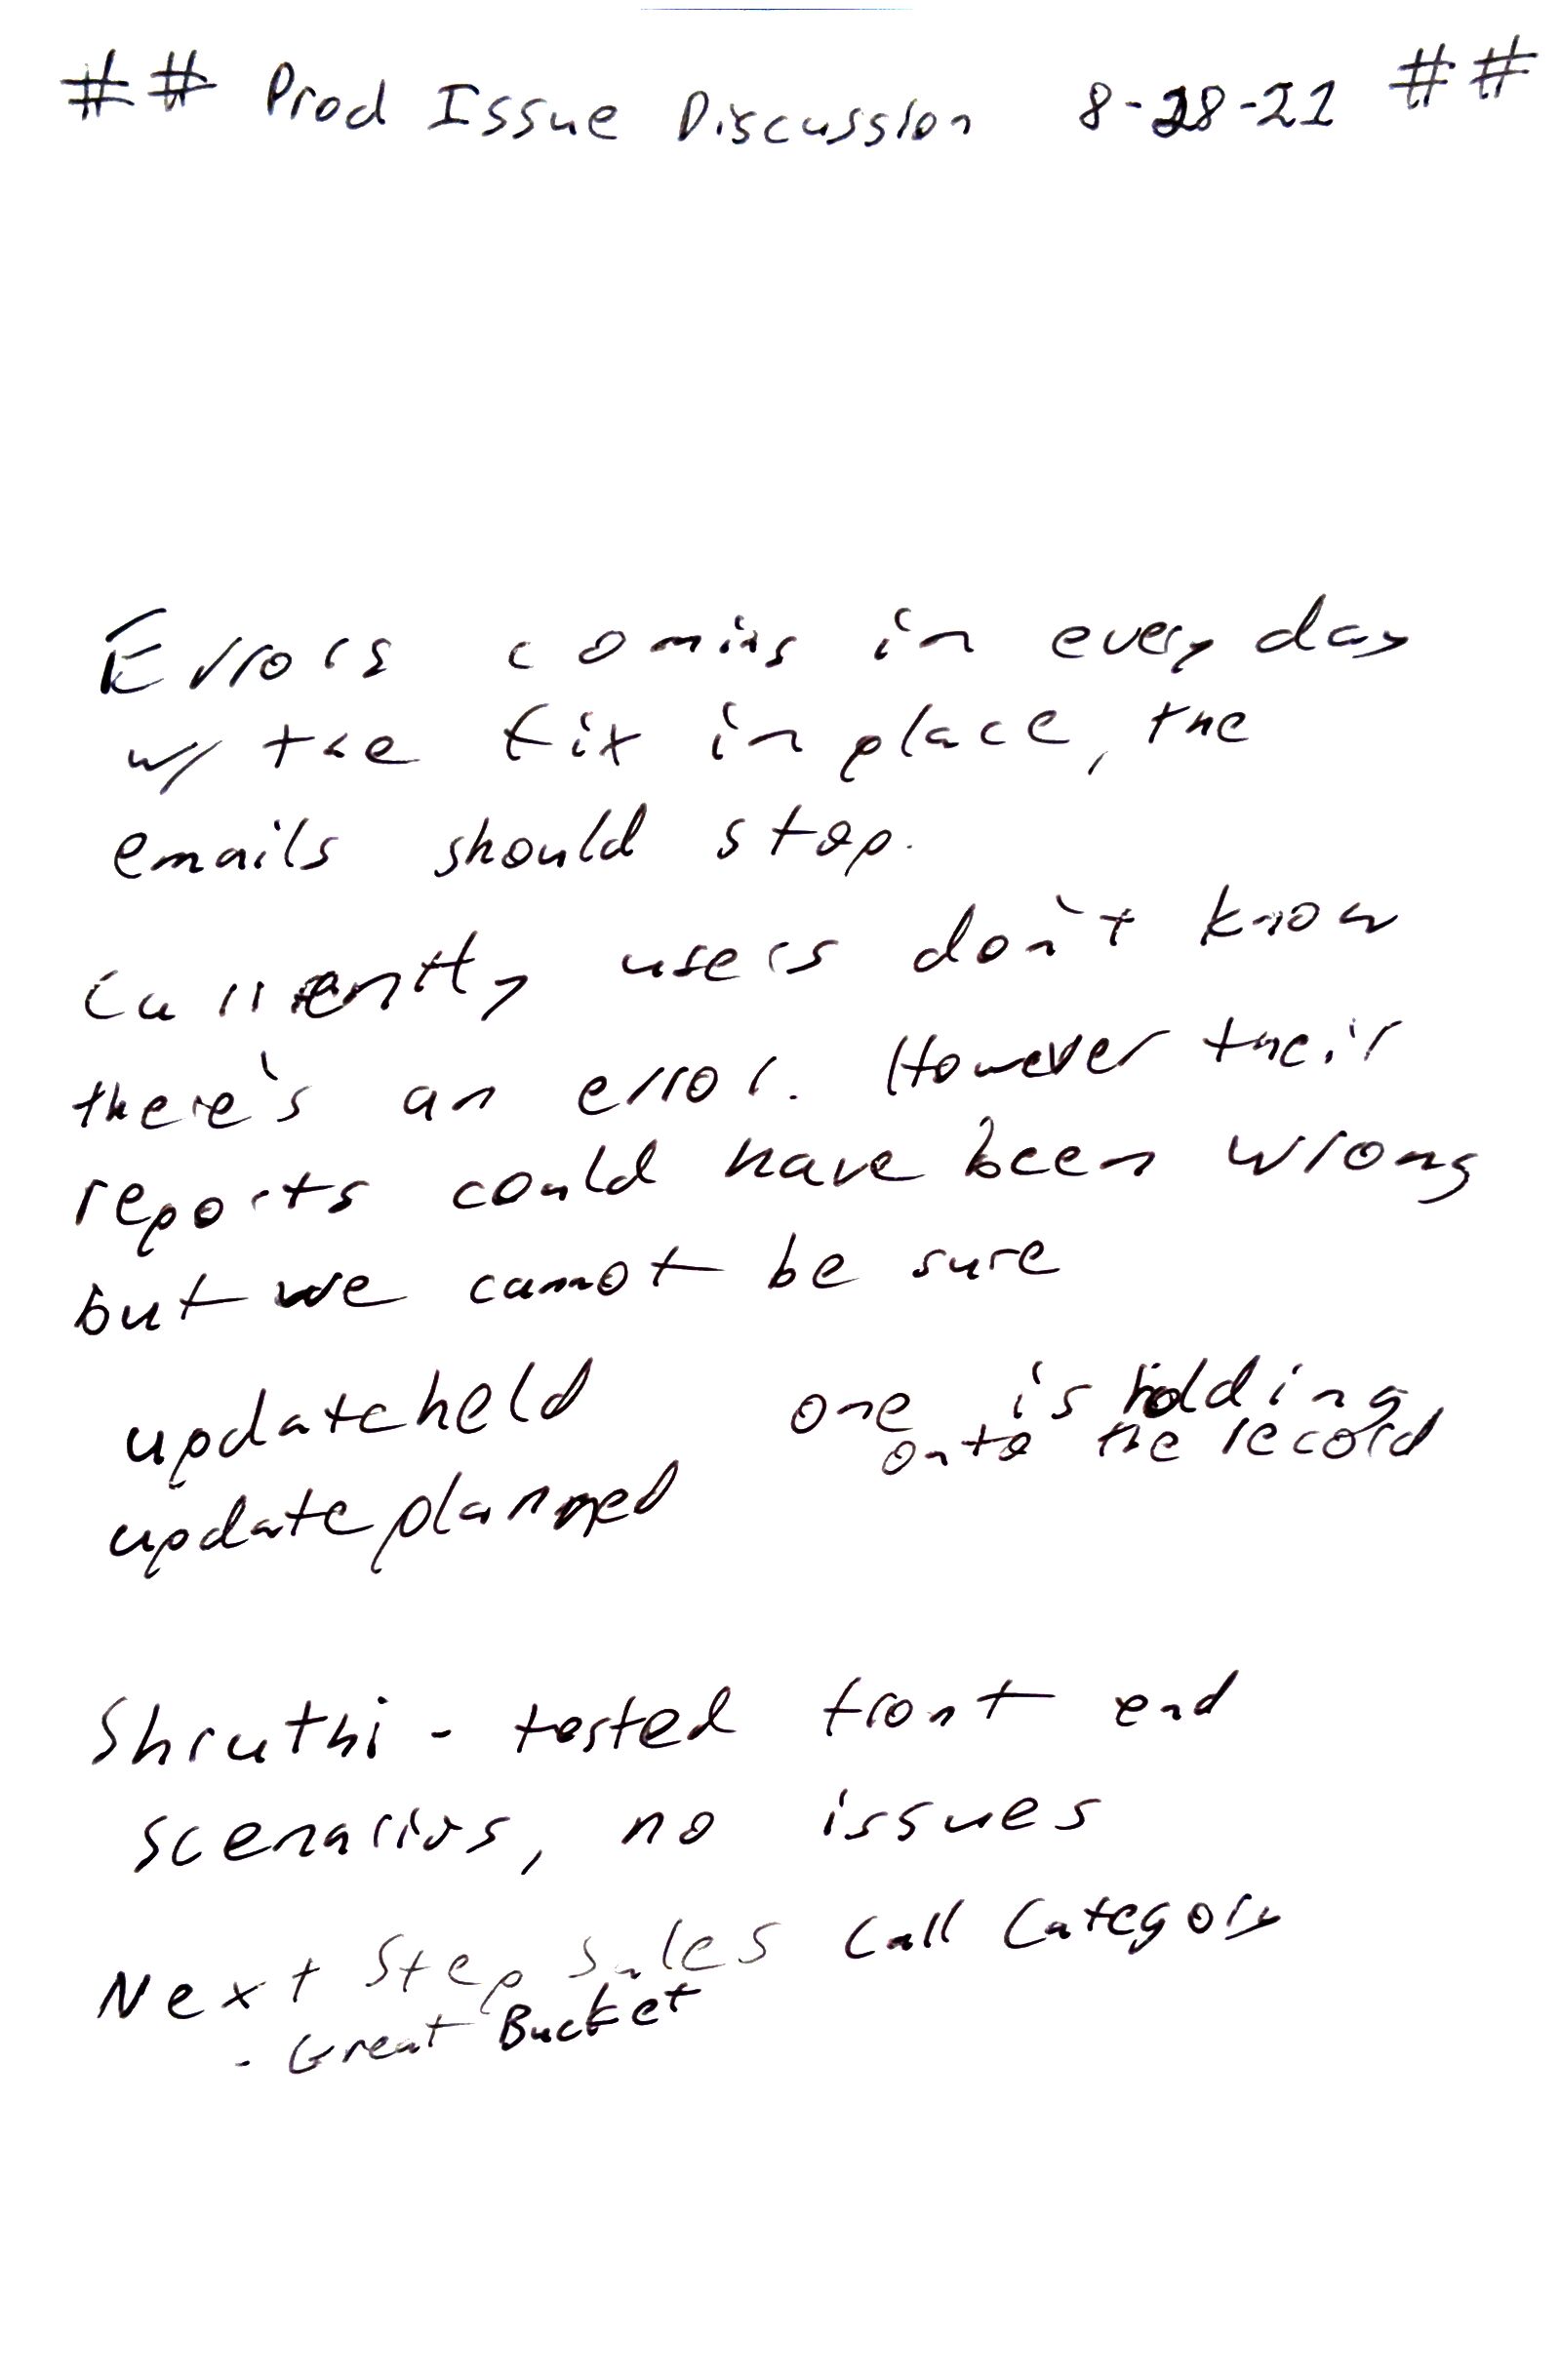 ## Prod Issue Discussion 8-28-21 ##
Errors coming in every day
w/ the fix in place, the
emails should stop.
Currently users don't know
there's an error. However their
reports could have been wrong
but we cannot be sure
updateheld one is holding
onto the record
updateplanned
Shruthi - tested front end
scenarios, no issues
Next Step Sales Call Category
- Great Bucket